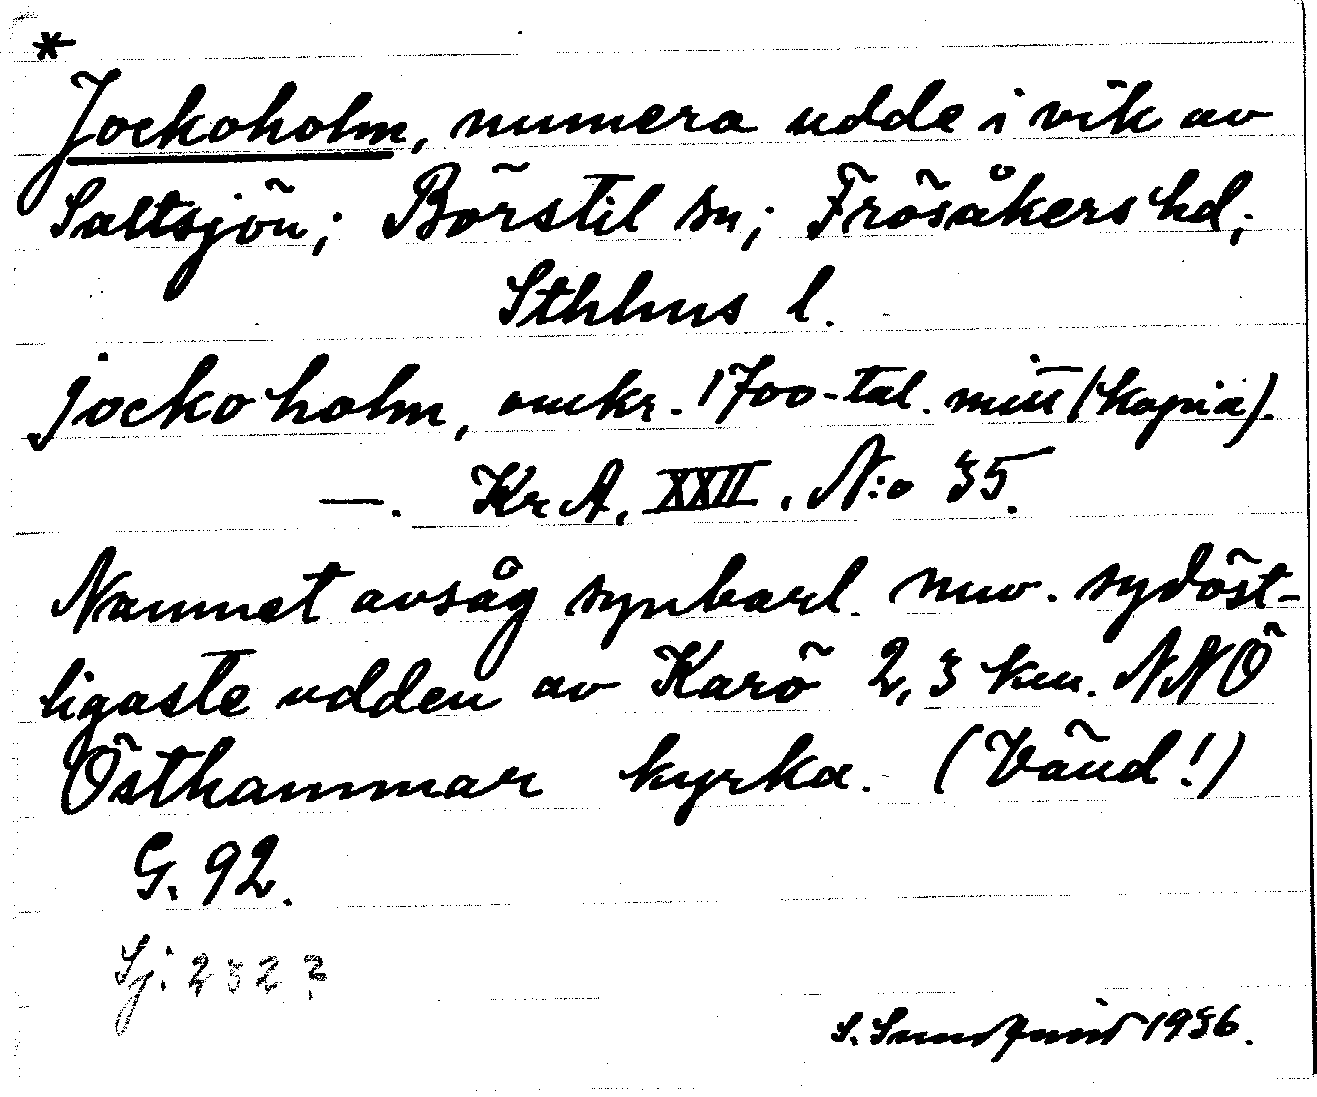 *
Jockoholm, numera udde i vik av
Saltsjön; Börstil sn; Frösåkers hd;
Sthlms l.
jockoholm, omkr. 1700-tal. mitt (kopia).
—. KrA, XXII, N:o 35.
Namnet avsåg synbarl. nuv. sydöst-
ligaste udden av Karö 2,3 km. NNÖ
Östhammar kyrka. (Vänd!)
G. 92.
Sj: 232?
S. Sundqvist 1936.